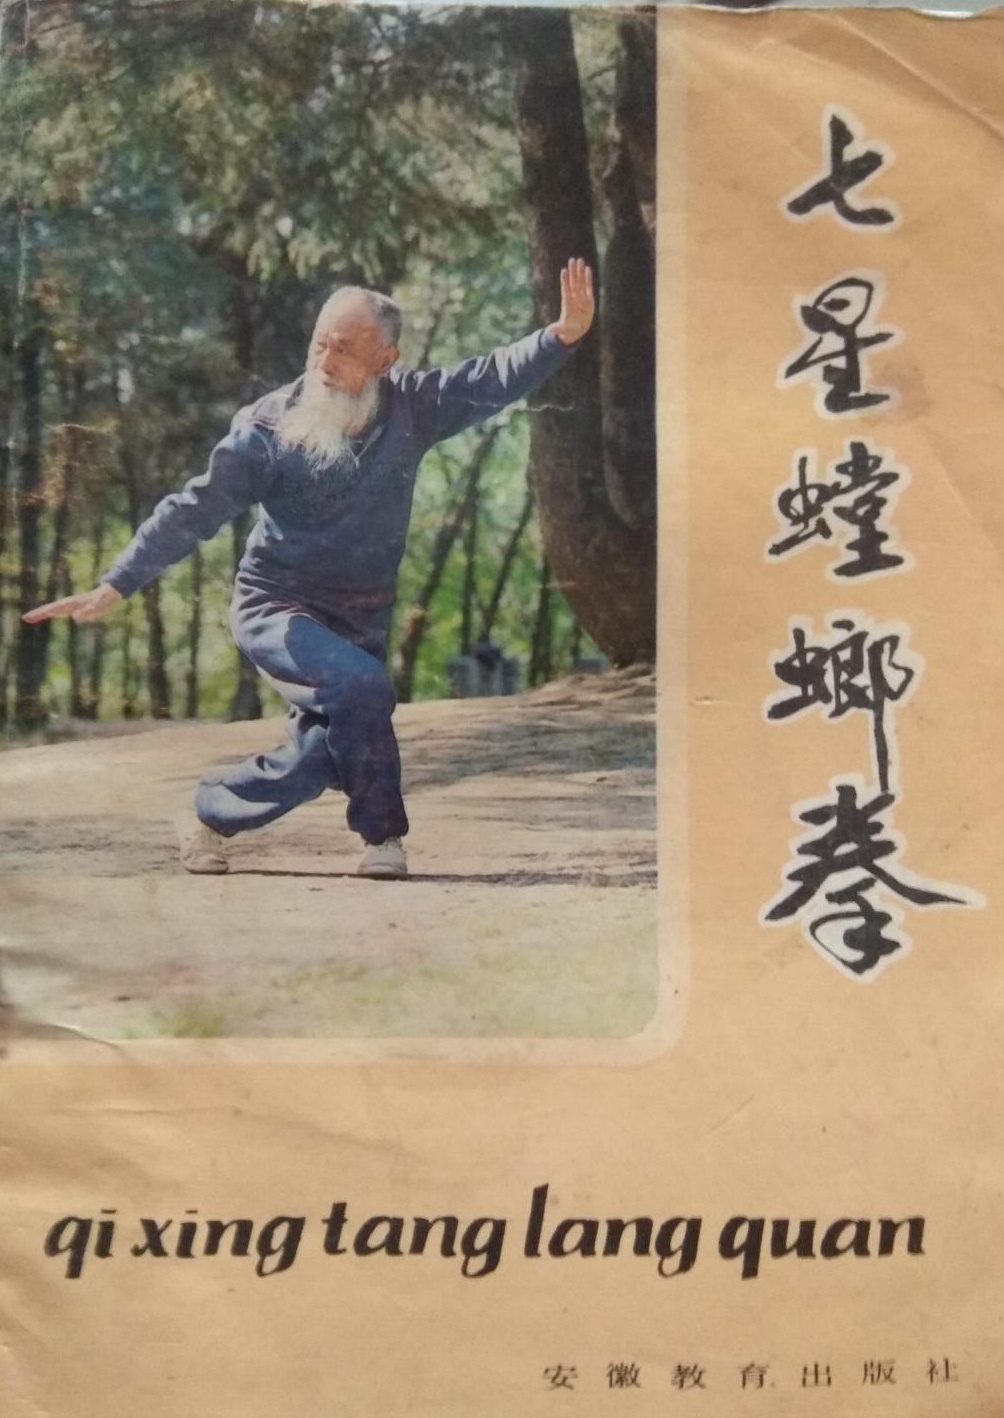 七星螳螂拳
qi xing tang lang quan
安徽教育出版社